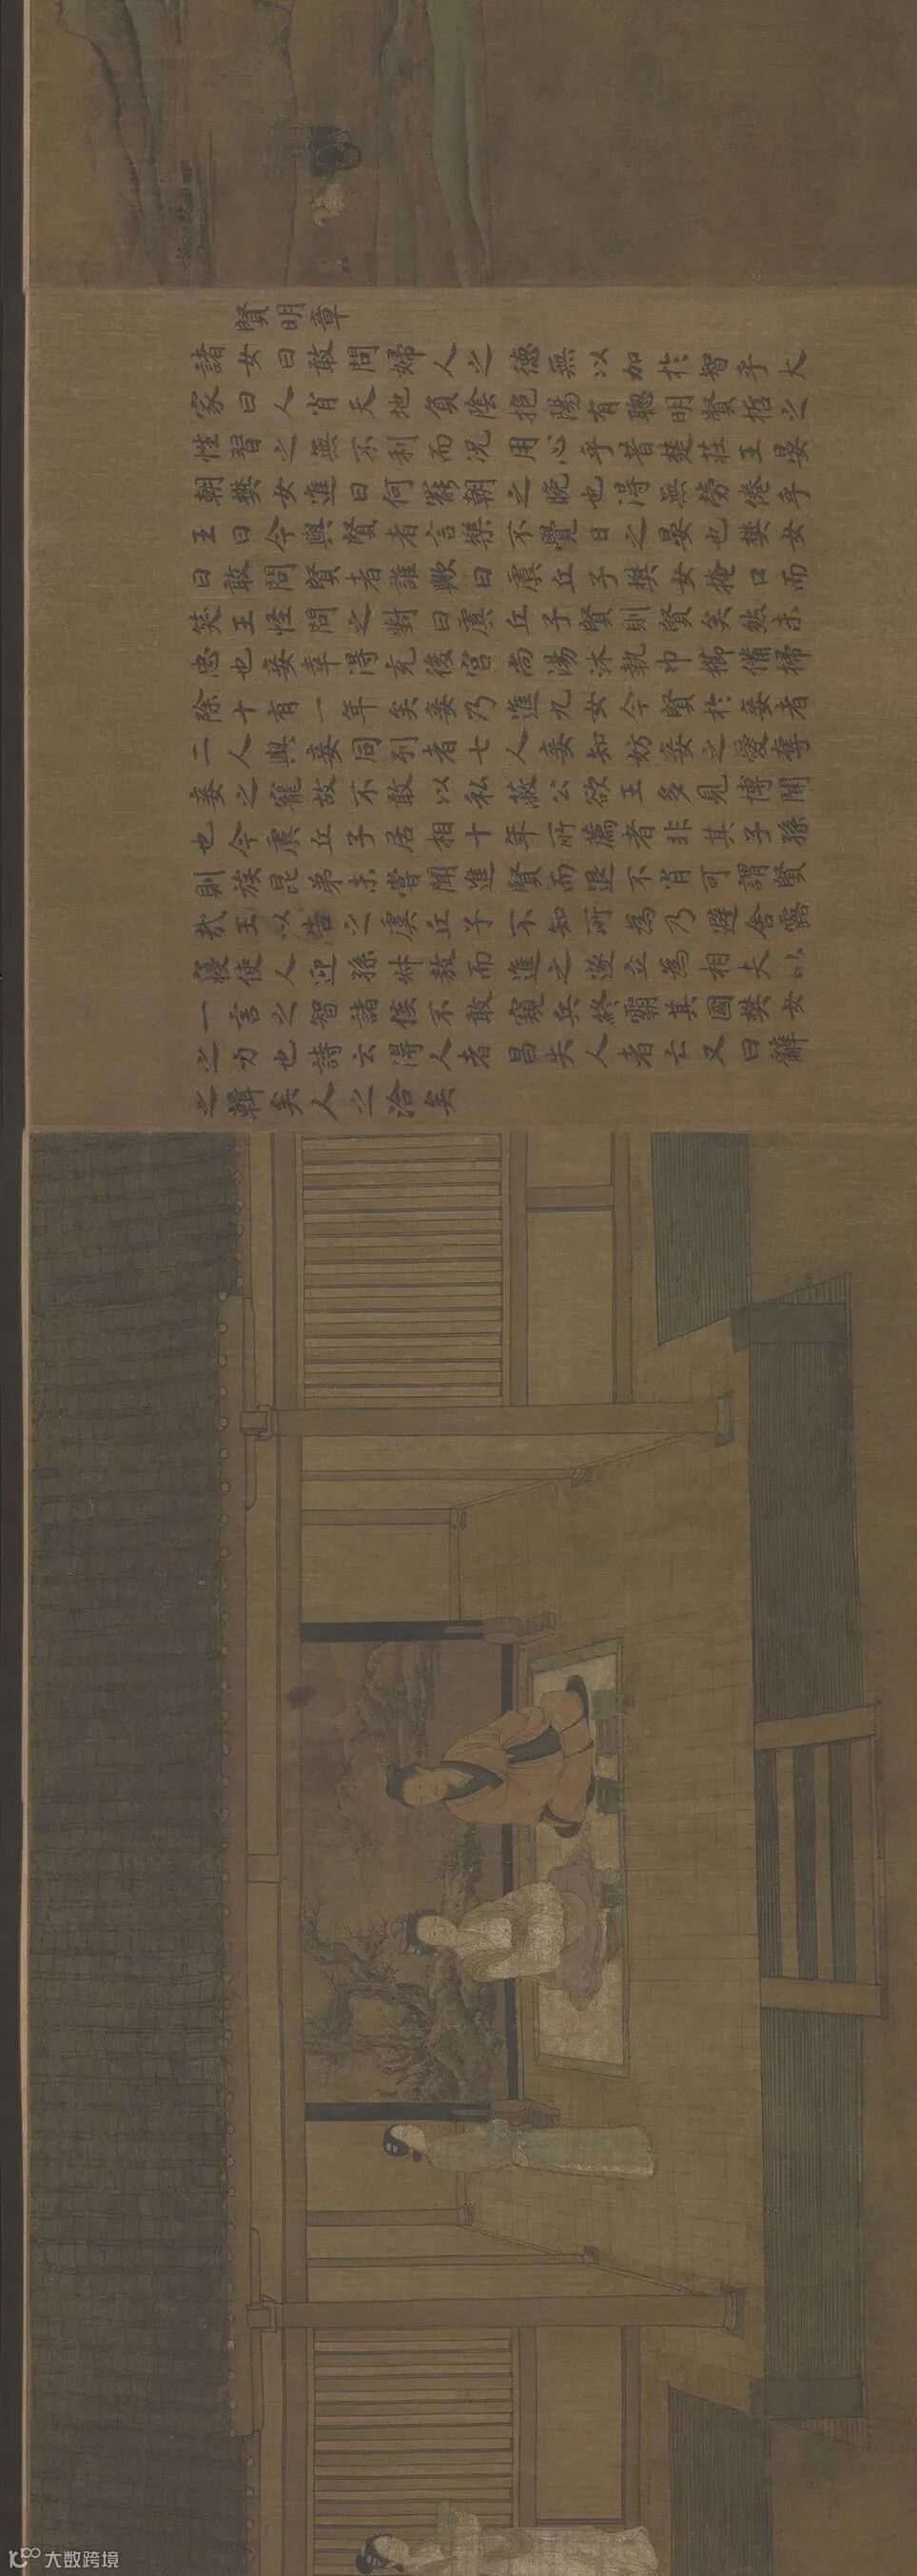 賢明章
諸女曰敢問婦人之德無以加於智乎大
家曰人肖天地負陰抱陽有聰明賢哲之
性習之無不利而況用心乎昔楚莊王晏
朝樊女進曰何罷朝之晚也得無勞倦乎
王曰今與賢者言樂不覺日之晏也樊女
曰敢問賢者誰歟曰虞丘子樊女掩口而
笑王怪問之對曰虞丘子賢則賢矣然未
忠也妾幸得充後宮尚湯沐執巾櫛備掃
除十有一年矣妾乃進九女今賢於妾者
二人與妾同列者七人妾知妨妾之愛奪
妾之寵故不敢以私蔽公欲王多見博聞
也今虞丘子居相十年所薦者非其子孫
則族昆弟未嘗聞進賢而退不肖可謂賢
哉王以告之虞丘子不知所為乃避舍露
寢使人迎孫叔敖而進之遂立為相夫以
一言之智諸侯不敢窺兵終霸其國樊女
之力也詩云得人者昌失人者亡又曰辭
之輯矣人之洽矣
大数跨境